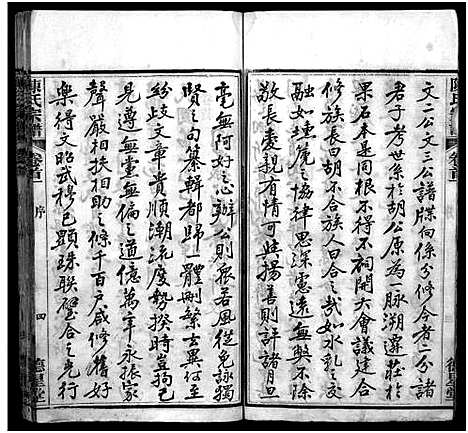 文二公文三公譜牒向係分修今者二分諸
君子考世系於胡公原為一脉溯遷莊於
果石本是同根不得不祠開大會議建合
修族長曰胡不合族人曰合之哉如水乳之交
融如壎箎之協律思深慮遠無與不除
敬長愛親有情可共揚善則評諸月旦
毫無阿好之心辦公則飛若風從免詠獨
賢之句纂輯都歸一體刪繁去異何
紛歧文章貴順潮流度勢揆時豈狥己
見遵無黨無偏之道億萬年永振家
聲嚴相扶相助之條千百戶咸修舊好
樂得文昭武穆已顯珠聯璧合之先行
陳氏宗譜
卷首
序
四
德星堂